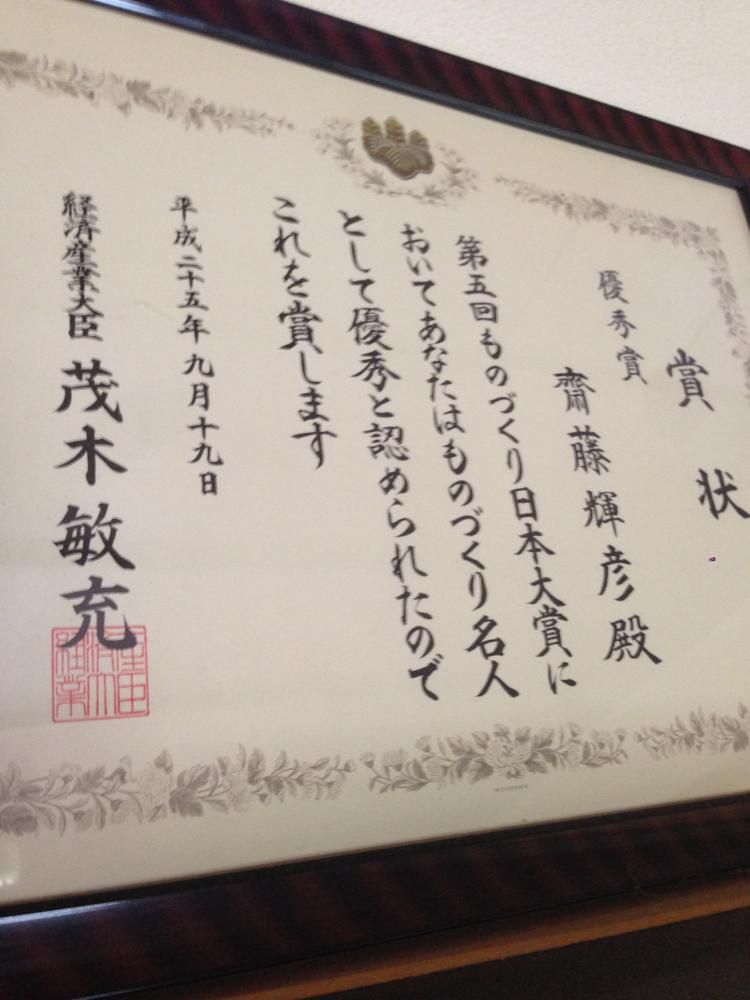 賞状
優秀賞
齋藤輝彦殿
第五回ものづくり日本大賞に
おいてあなたはものづくり名人
として優秀と認められたので
これを賞します
平成二十五年九月十九日
経済産業大臣 茂木敏充